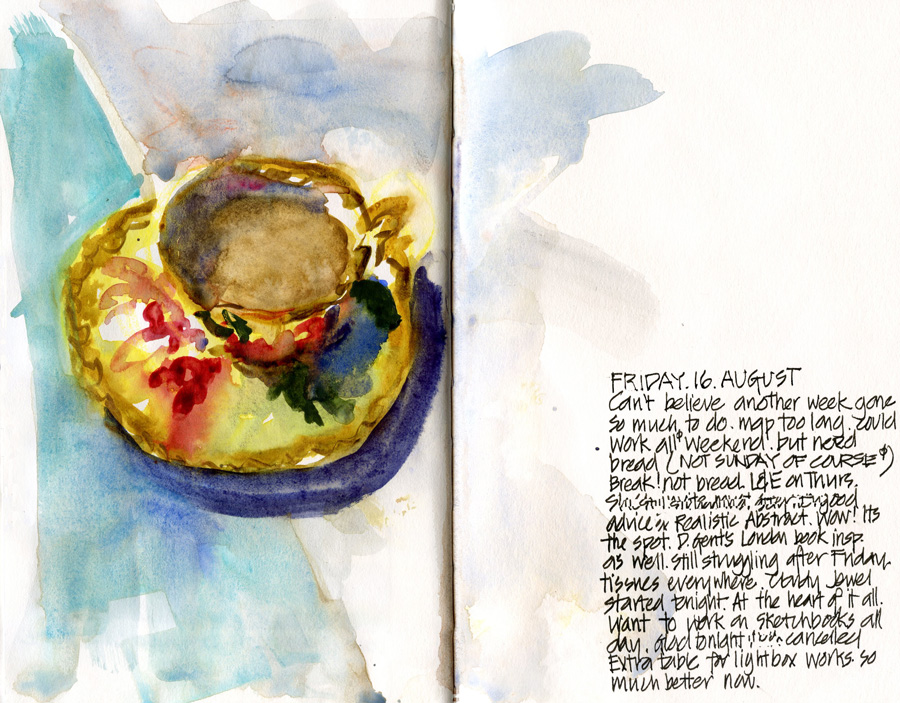 FRIDAY. 16. AUGUST
Can't believe another week gone
so much to do. map too long. could
work all weekend. but need
bread (NOT SUNDAY OF COURSE)
Break! not bread. L&E on Thurs.
good
advice Realistic Abstract. Wow! Its
the spot. D. Gent's London book insp.
as well. still struggling after Friday.
tissues everywhere. Jewel
started tonight. At the heart of it all.
Want to work on sketchbooks all
day. glad tonight cancelled
Extra table for lightbox works. so
much better now.